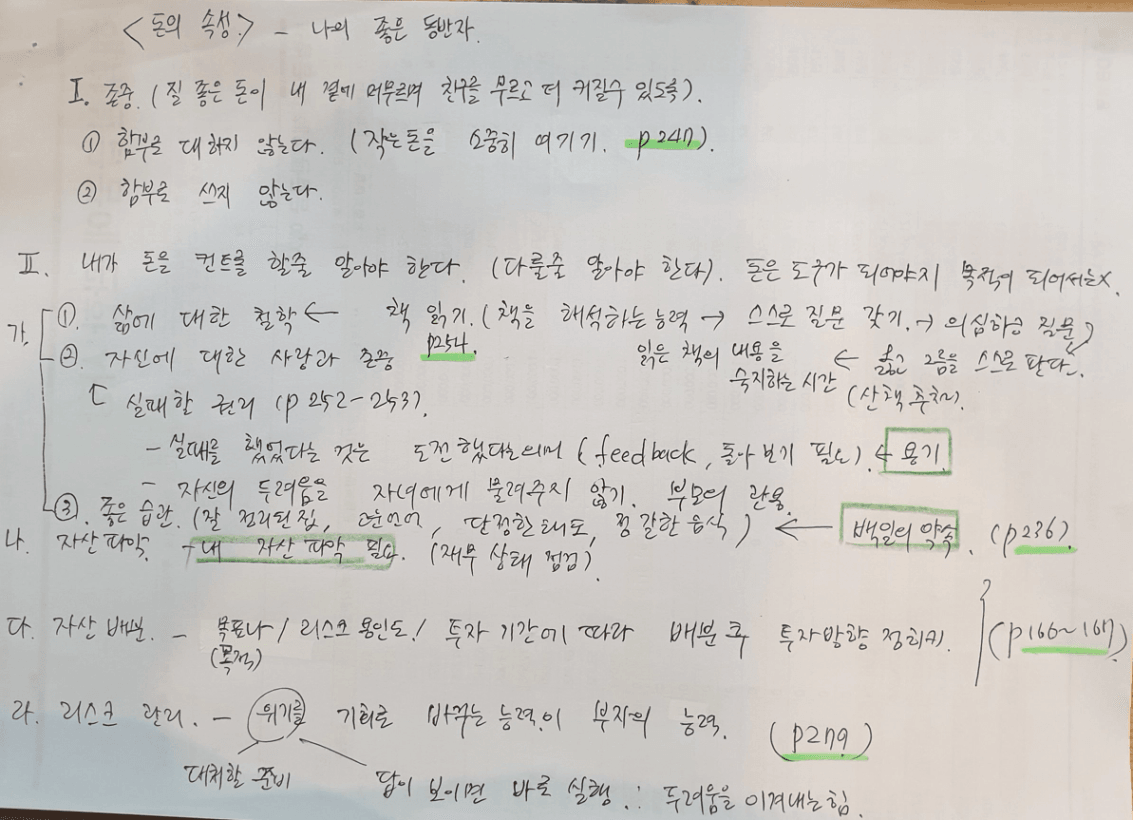 <돈의 속성> - 나의 좋은 동반자.
I. 존중. (질 좋은 돈이 내 곁에 머무르며 친구를 부르고 더 커질수 있도록).
① 함부로 대하지 않는다. (작은돈을 소중히 여기기. p247).
② 함부로 쓰지 않는다.
II. 내가 돈을 컨트롤 할줄 알아야 한다. (다룰줄 알아야 한다). 돈은 도구가 되어야지 목적이 되어서는X.
가. ①. 삶에 대한 철학 ← 책 읽기. (책을 해석하는 능력 → 스스로 질문 갖기. → 의심하고 질문)
②. 자신에 대한 사랑과 존중 p254. 읽은 책의 내용을 숙지하는 시간 (산책 추천). ← 옳고 그름을 스스로 판다.
실패할 권리 (p 252-253).
- 실패를 했었다는 것은 도전했다는의미 (feedback, 돌아보기 필요). ← 용기.
- 자신의 두려움을 자녀에게 물려주지 않기. 부모의 관용.
③. 좋은 습관. (잘 정리된 집, 단정한태도, 정갈한 음식) ← 백일의 약속. (p236).
나. 자산파악. → 내 자산 파악 필요. (재무 상태 점검).
다. 자산 배분. - 목표나/ 리스크 용인도/ 투자 기간에 따라 배분 후 투자방향 정하기. (p166~167)
(목적)
라. 리스크 관리. - 위기를 기회로 바꾸는 능력.이 부자의 능력. (p279)
대처할 준비 답이 보이면 바로 실행 ∴ 두려움을 이겨내는힘.